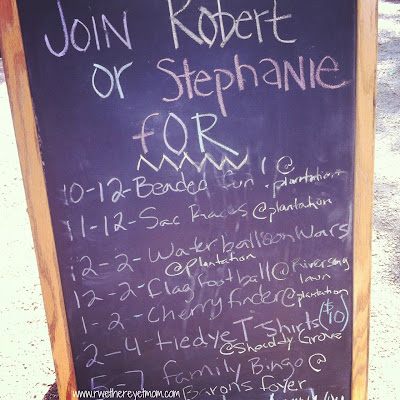 JOIN Robert
or Stephanie
fOR
10-12-Beaded fun! @ plantation
11-12-Sac Races @plantation
12-2-Water balloon Wars
@Plantation
12-2-Flag football @Riversong lawn
1-2-Cherry finder @plantation
2-4-Tiedye T-Shirts ($10)
@Shaddy Grove
5-7 Family Bingo @
Barons foyer
www.rwethereyetmom.com